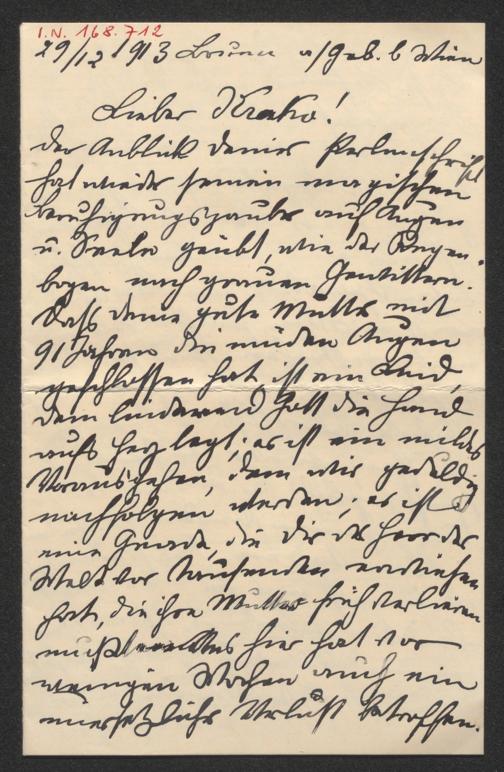 I.N. 168.712
29/12 1913 Brunn a/Geb. b Wien
Lieber Krako!
der Anblick Deiner Perlenschrift
hat wieder seinen magischen
beruhigungszauber auf Augen
u. Seele geübt, wie der Regen-
bogen nach grauen Gewittern.
Dass deine gute Mutter mit
91 Jahren die müden Augen
geschlossen hat, ist ein Leid,
dem lindernd Gott die Hand
aufs Herz legt; es ist ein mildes
Vorausgehen, dem wir geduldig
nachfolgen werden; es ist
eine Gnade, die Dir der Herr der
Welt vor Tausenden verliehen
hat, die ihre Mutter früh verlieren
mußten. hier hat vor
wenigen Wochen auch ein
unersetzlicher Verlust betroffen.